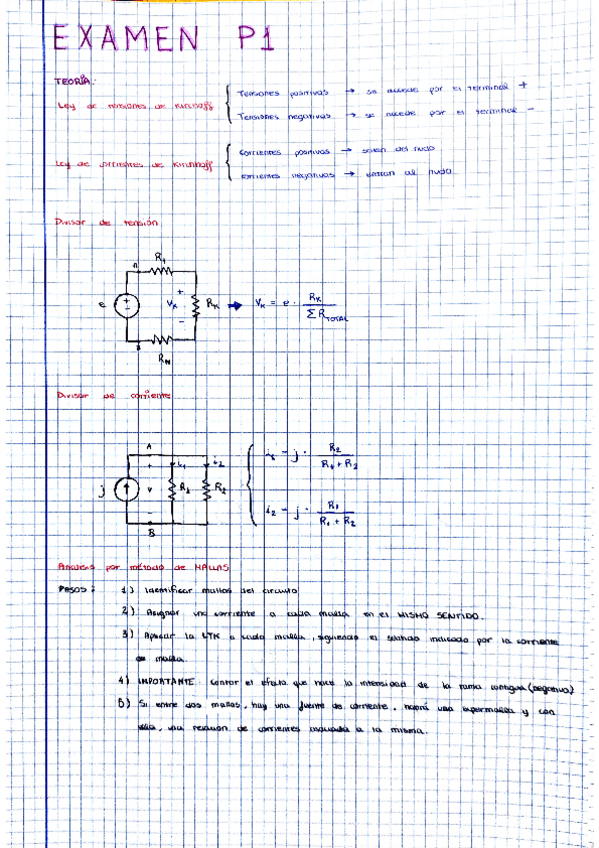 EXAMEN P1
TEORÍA:
Ley de tensiones de Kirchhoff
Tensiones positivas → se accede por el terminal +
Tensiones negativas → se accede por el terminal -
Ley de corrientes de Kirchhoff
Corrientes positivas → salen del nudo
Corrientes negativas → entran al nudo
Divisor de tensión
R1
e + - + Vk - Rk → Vk = e · Rk / Σ RTOTAL
RN
Divisor de corriente
A
j + v - i1 i2 R1 R2
i1 = j · R2 / R1 + R2
i2 = j · R1 / R1 + R2
B
Análisis por método de MALLAS
PASOS: 1) Identificar mallas del circuito
2) Asignar una corriente a cada malla en el MISMO SENTIDO.
3) Aplicar la LTK a cada malla, siguiendo el sentido indicado por la corriente
de malla.
4) IMPORTANTE: contar el efecto que hace la intensidad de la rama contigua (negativo)
5) Si entre dos mallas, hay una fuente de corriente, habrá una supermalla y con
ella, una relación de corrientes asociada a la misma.